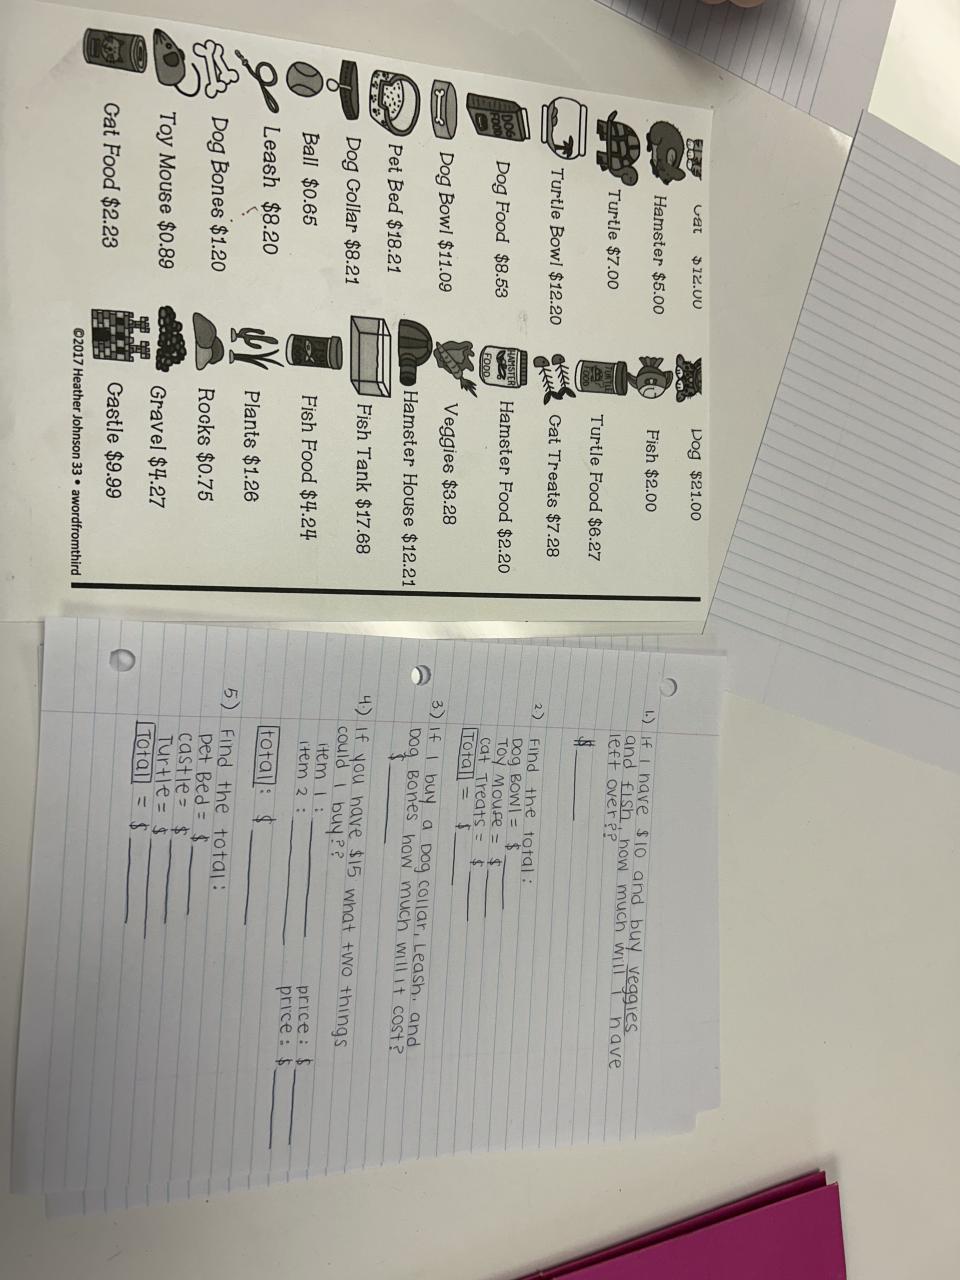 Cat $12.00
Dog $21.00
Hamster $5.00
Fish $2.00
Turtle $7.00
Turtle Food $6.27
Turtle Bowl $12.20
Cat Treats $7.28
DOG FOOD
Dog Food $8.53
HAMSTER FOOD
Hamster Food $2.20
Dog Bowl $11.09
Veggies $3.28
Pet Bed $18.21
Hamster House $12.21
Dog Collar $8.21
Fish Tank $17.68
Ball $0.65
Fish Food $4.24
Leash $8.20
Plants $1.26
Dog Bones $1.20
Rocks $0.75
Toy Mouse $0.89
Gravel $4.27
Cat Food $2.23
Castle $9.99
©2017 Heather Johnson 33 • awordfromthird
1.) If I have $10 and buy veggies
and fish, how much will I have
left over??
$
2) Find the total:
Dog Bowl = $
Toy Mouse = $
Cat Treats = $
Total = $
3) If I buy a Dog collar, Leash, and
Dog Bones how much will it cost?
$
4) If you have $15 what two things
could I buy??
item 1: price: $
item 2: price: $
total: $
5) Find the total:
Pet Bed = $
Castle = $
Turtle = $
Total = $